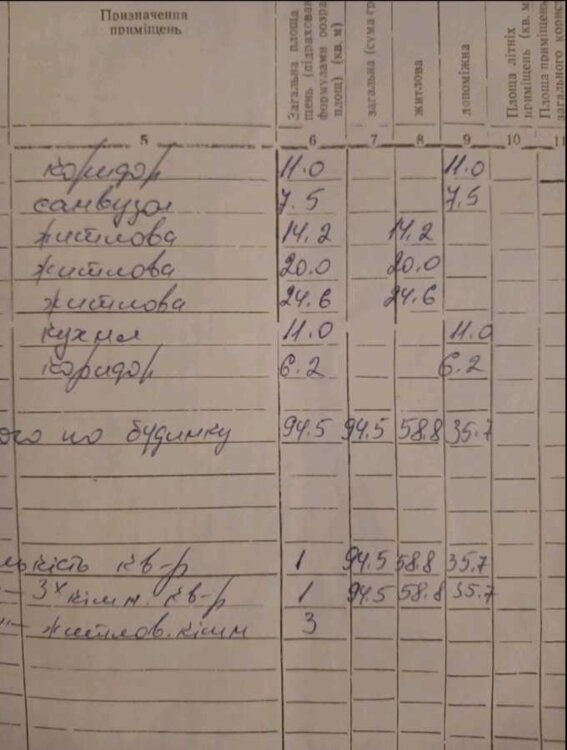 Призначення приміщень
Загальна площа
щень (підрахован
формулами розра
площ) (кв. м)
загальна (сума гр
житлова
допоміжна
Площа літніх
приміщень (кв. м
Площа приміщень
загального корист
5 6 7 8 9 10 11
коридор 11.0 11.0
санвузол 7.5 7,5
житлова 14.2 14.2
житлова 20.0 20.0
житлова 24.6 24.6
кухня 11.0 11.0
коридор 6.2 6.2
ого по будинку 94.5 94.5 58.8 35.7
лькість кв-р 1 94.5 58.8 35.7
–"– 3х кімн. кв-р 1 94.5 58.8 35.7
–"– житлов. кімн 3